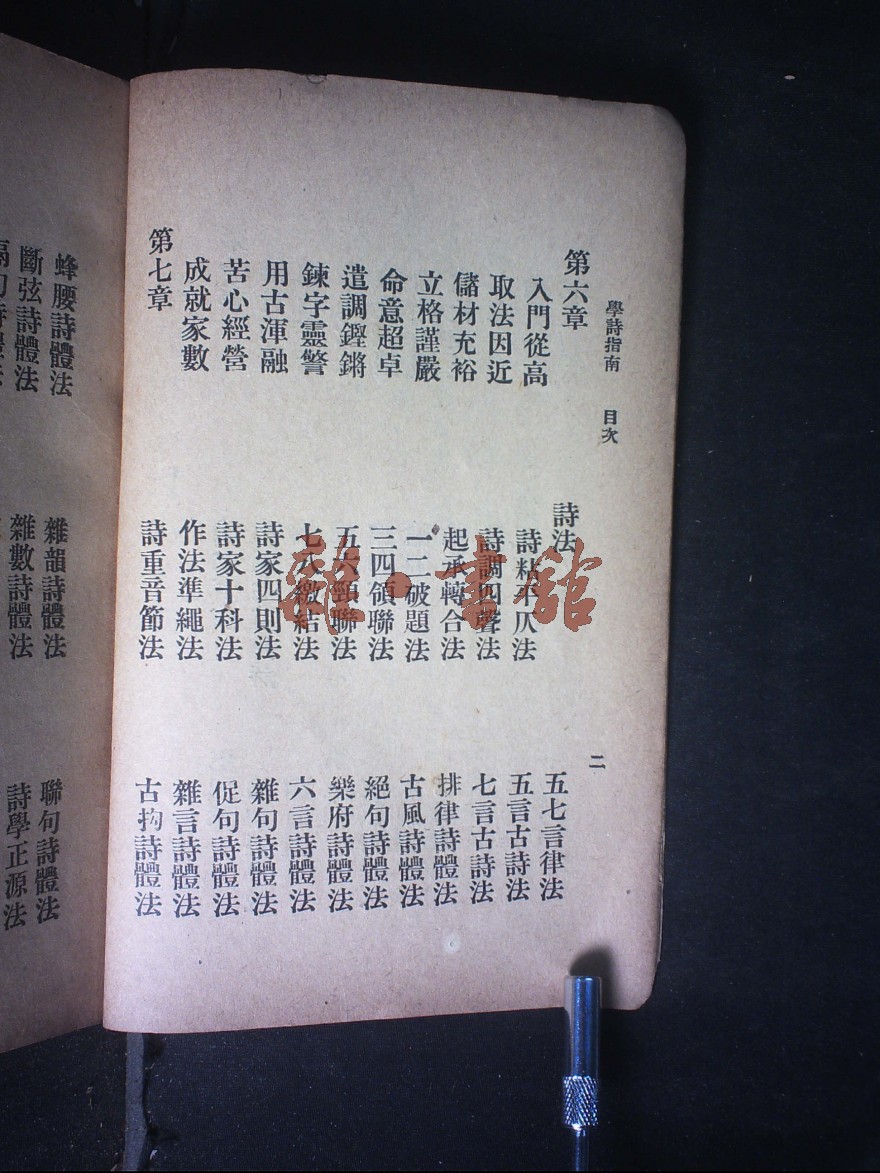 學詩指南 目次 二
第六章
入門從高
取法因近
儲材充裕
立格謹嚴
命意超卓
遣調鏗鏘
鍊字靈警
用古渾融
苦心經營
成就家數
第七章
詩法
詩粘平仄法
詩調四聲法
起承轉合法
一二破題法
三四領聯法
五六頸聯法
七八繳結法
詩家四則法
詩家十科法
作法準繩法
詩重音節法
五七言律法
五言古詩法
七言古詩法
排律詩體法
古風詩體法
絕句詩體法
樂府詩體法
六言詩體法
雜句詩體法
促句詩體法
雜言詩體法
古抝詩體法
蜂腰詩體法
斷弦詩體法
雜韻詩體法
雜數詩體法
聯句詩體法
詩學正源法